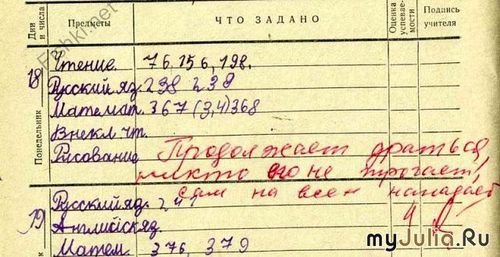 Дни и числа
Предметы
ЧТО ЗАДАНО
Оценка успевае- мости
Подпись учителя
18
Понедельник
Чтение 76. 156, 198.
Русский яз. 238 239
Математ. 367 (3,4) 368
Внекл чт.
Рисование
Продолжает драться,
никто его не трогает,
сам на всех нападает
19
Русский яз. 241
Английск яз.
Матем. 376, 379
4
Fishki.net
myJulia.Ru